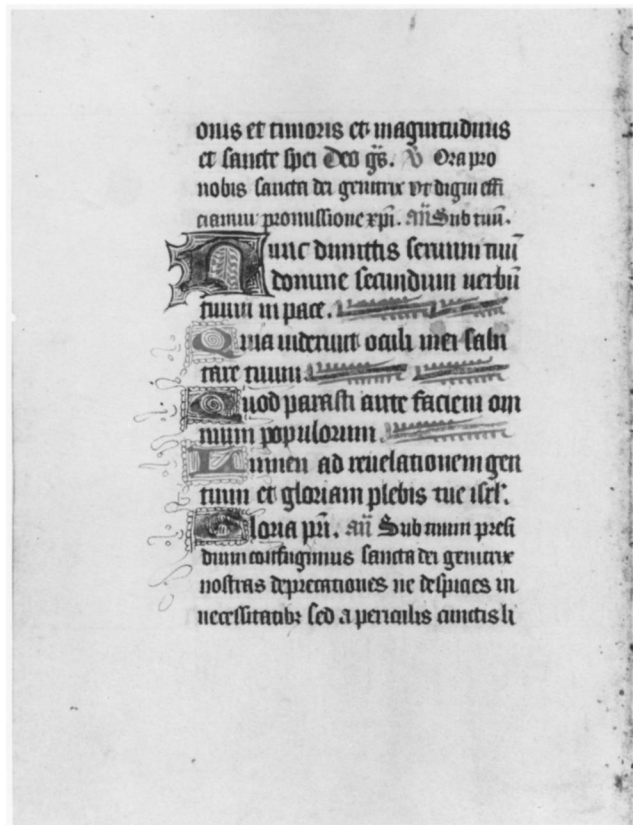 onis et timoris et magnitudinis
et sancte spei Deo gr̄s. ℣ Ora pro
nobis sancta dei genitrix Vt digni effi
ciamur promissione xp̄i. an̄ Sub tuū.
Nunc dimittis seruum tuū
domine secundum uerbū
tuum in pace.
Quia uiderunt oculi mei salu
tare tuum
Quod parasti ante faciem om
nium populorum.
Lumen ad reuelationem gen
tium et gloriam plebis tue isrl'.
Gloria pr̄i. an̄ Sub tuum presi
dium confugimus sancta dei genitrix
nostras deprecationes ne despicies in
necessitatibꝫ sed a periculis cunctis li